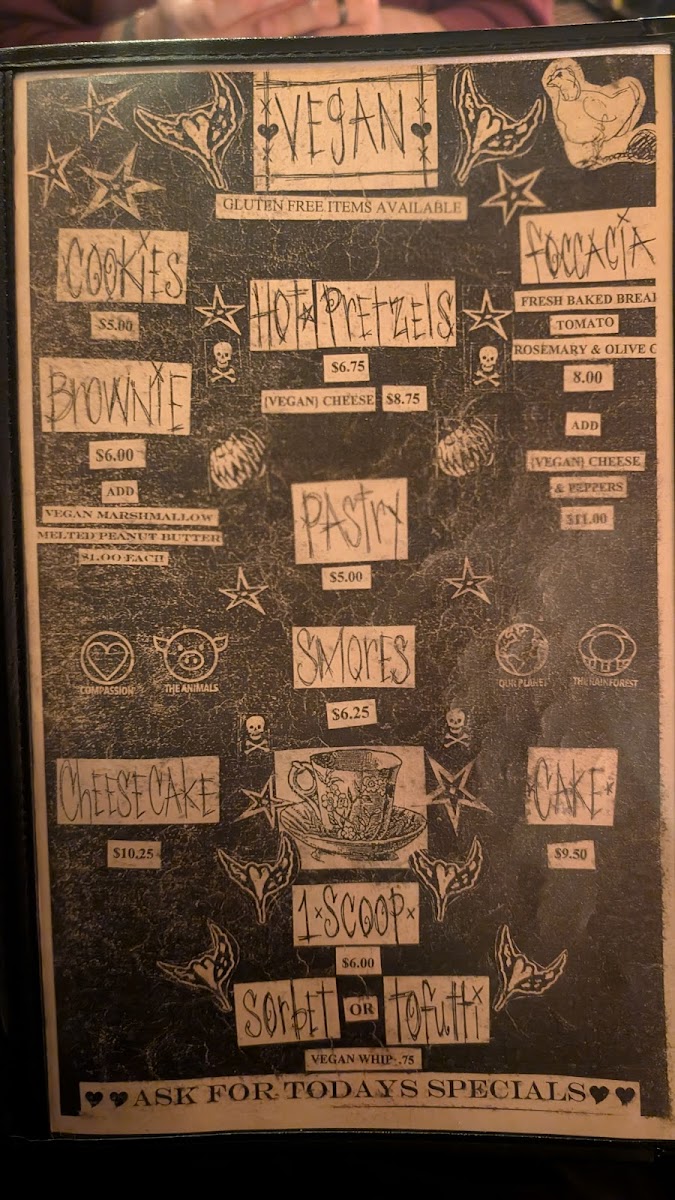 VEGAN
GLUTEN FREE ITEMS AVAILABLE
COOKIES
$5.00
BROWNIE
$6.00
ADD
VEGAN MARSHMALLOW
MELTED PEANUT BUTTER
$1.00 EACH
HOT PRETZELS
$6.75
{VEGAN} CHEESE $8.75
FOCCACIA
FRESH BAKED BREA
TOMATO
ROSEMARY & OLIVE O
8.00
ADD
{VEGAN} CHEESE
& PEPPERS
$11.00
PASTRY
$5.00
SMORES
$6.25
COMPASSION
THE ANIMALS
OUR PLANET
THE RAINFOREST
CHEESECAKE
$10.25
CAKE
$9.50
1 x SCOOP x
$6.00
SORBET OR TOFUTTI
VEGAN WHIP .75
ASK FOR TODAYS SPECIALS